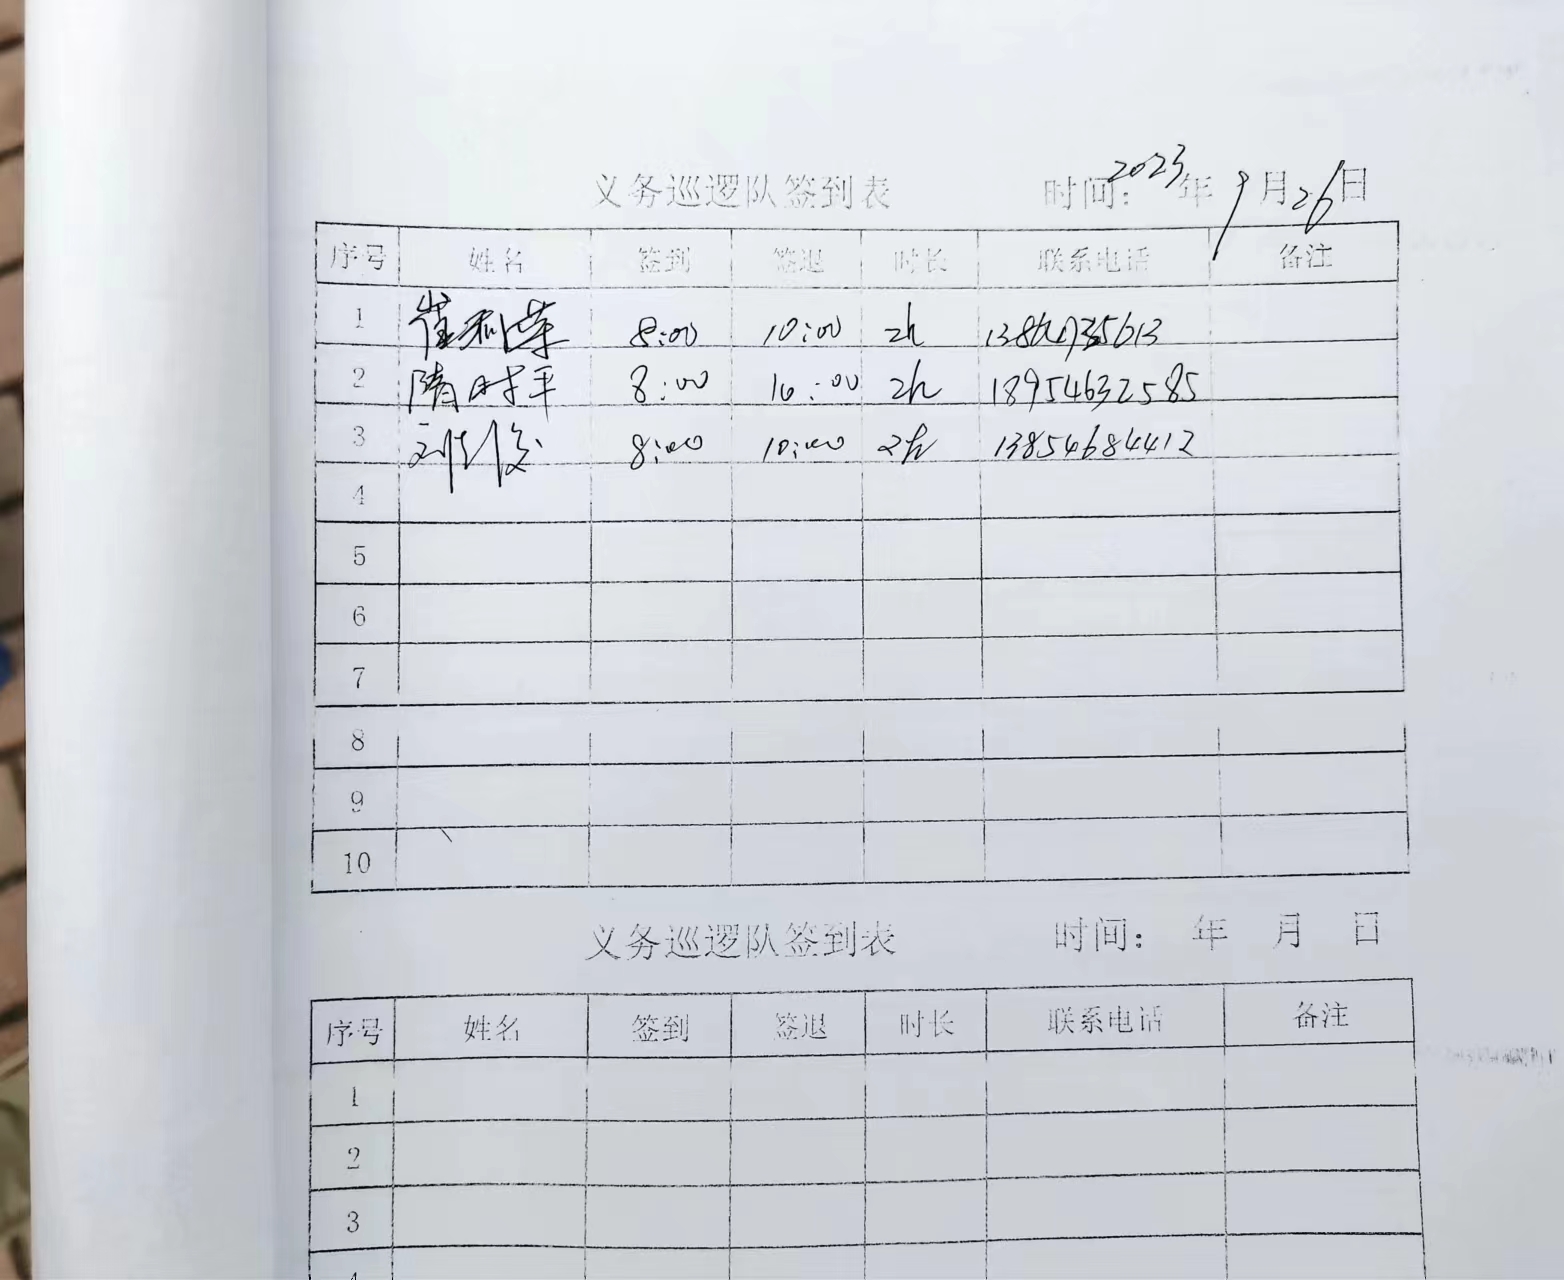 义务巡逻队签到表 时间：2023年9月26日
序号 姓名 签到 签退 时长 联系电话 备注
1 崔利荣 8:00 10:00 2h
2 隋时平 8:00 10:00 2h 18954632585
3 8:00 10:00 2h 13854684412
4
5
6
7
8
9
10
义务巡逻队签到表 时间： 年 月 日
序号 姓名 签到 签退 时长 联系电话 备注
1
2
3
4